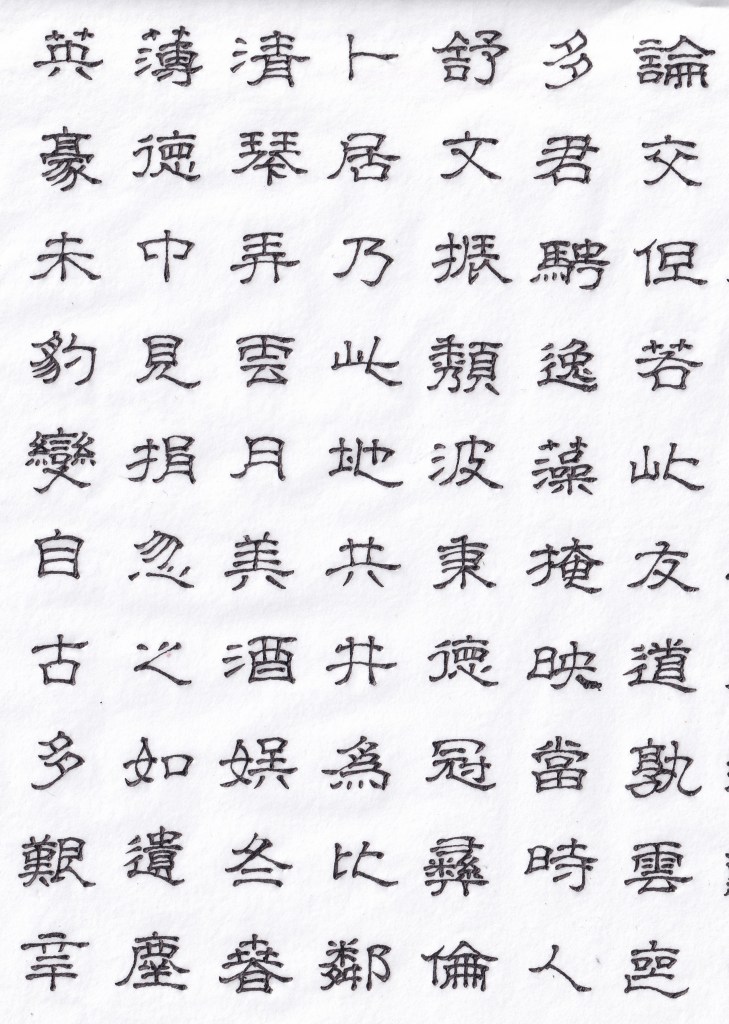 論交但若此友道孰雲喪
多君騁逸藻掩映當時人
舒文振頹波秉徳冠彝倫
卜居乃此地共井爲比鄰
清琴弄雲月美酒娛冬春
薄徳中見捐忽之如遺塵
英豪未豹變自古多艱辛